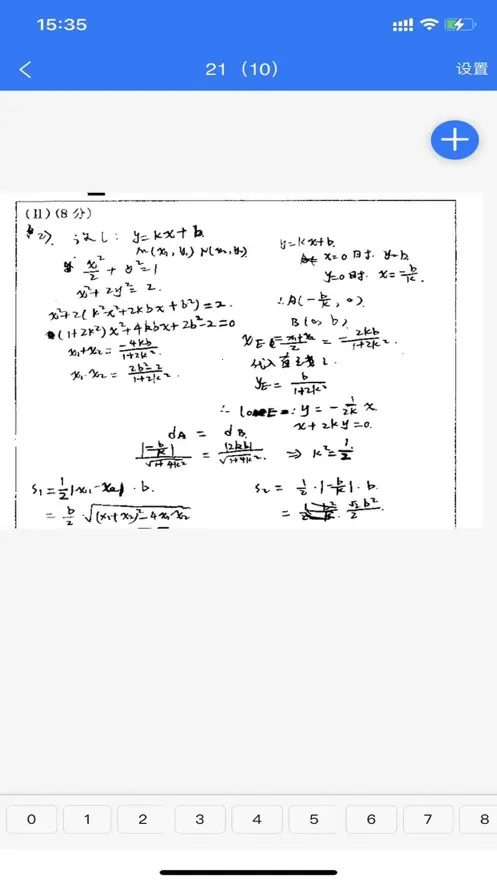 15:35
21（10）
设置
(II) (8分)
(2) 设l: y=kx+b.
M(x₁, y₁) N(x₂, y₂)
x²/2 + y²=1
x²+2y²=2.
x²+2(k²x²+2kbx+b²)=2.
(1+2k²)x²+4kbx+2b²-2=0
x₁+x₂ = -4kb/1+2k².
x₁·x₂ = 2b²-2/1+2k²
y=kx+b.
x=0时. y=b
y=0时. x=-b/k.
∴A(-b/k, 0).
B(0, b)
x_E=x₁+x₂/2 = -2kb/1+2k².
代入直线l.
y_E = b/1+2k²
∴ l_OE: y = -1/2k x.
x+2ky=0.
d_A = d_B.
|-b/k|/√1+4k² = |2kb|/√1+4k² ⇒ k²=1/2
S₁=1/2|x₁-x₂|·b.
= b/2·√(x₁+x₂)²-4x₁x₂
S₂ = 1/2·|-b/k|·b.
= √2b²/2
0 1 2 3 4 5 6 7 8